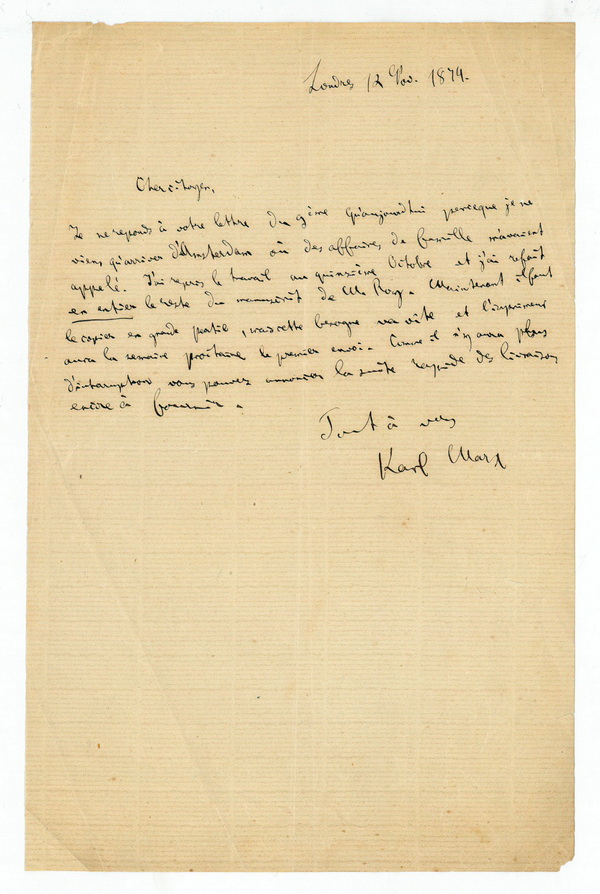 Londres 12 Nov. 1874.
Cher citoyen,
Je ne reponds à votre lettre du 9ème qu'aujourdhui parceque je ne
viens qu'arriver d'Amsterdam où des affaires de famille m'avaient
appelé. J'ai repris le travail au quinzième Octobre et j'ai refait
en entier le reste du manuscrit de Mr Roy. Maintenant il faut
le copier en grande partie, mais cette besogne va vite et l'imprimeur
aura la semaine prochaine le premier envoi. Comme il n'y aura plus
d'interruption vous pouvez annoncer la suite rapide des livraisons
encore à fournir.
Tout à vous
Karl Marx